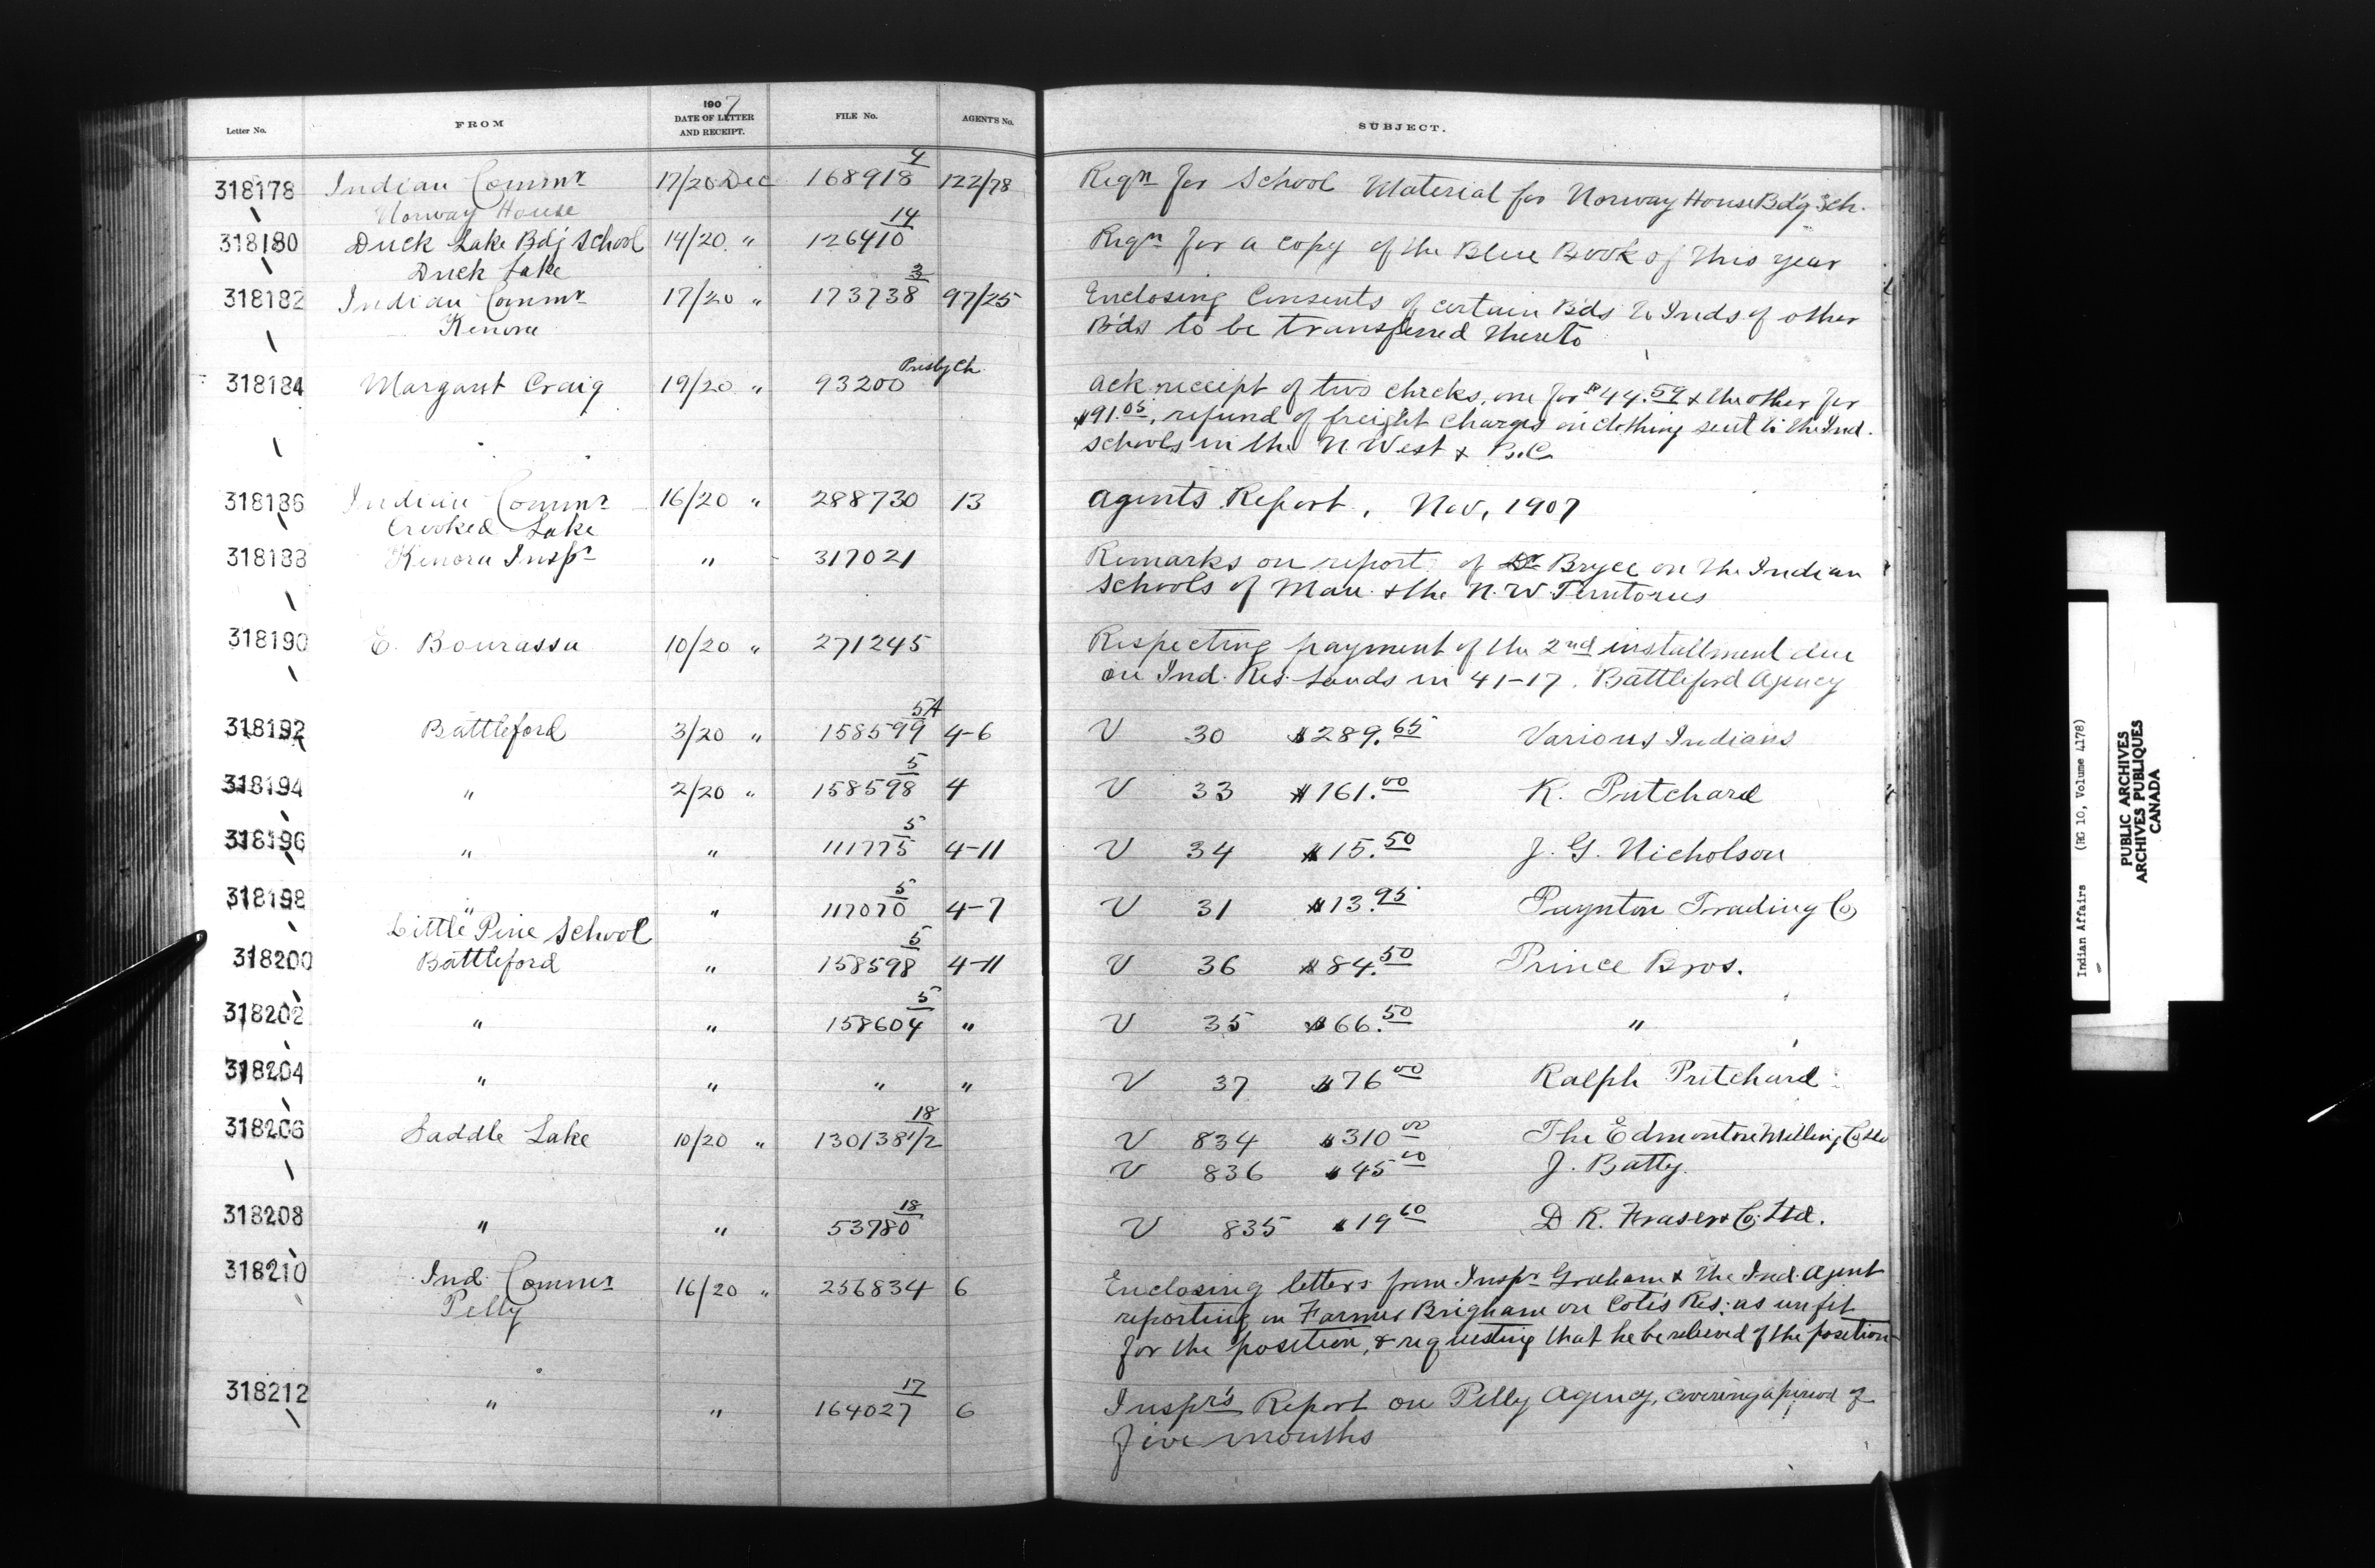 Letter No. FROM 1907 DATE OF LETTER AND RECEIPT. FILE No. AGENT'S No. SUBJECT.
318178 Indian Commr 17/20 Dec 168918 4 122/78 Reqn for School Material for Norway House Bdg Sch.
Norway House
318180 Duck Lake Bdg School 14/20 " 126410 14 Reqn for a copy of the Blue Book of this year
Duck Lake
318182 Indian Commr 17/20 " 173738 3 97/25 Enclosing Consents of certain Bds to Inds of other
Kenora Bds to be transferred thereto
318184 Margaret Craig 19/20 " 93200 Presby Ch. Ack receipt of two checks, one for $44.59 & the other for
$91.05, refund of freight charges on clothing sent to the Ind.
schools in the N. West & B.C.
318186 Indian Commr 16/20 " 288730 13 Agents Report, Nov, 1907
Crooked Lake
318188 Kenora Inspr " 317021 Remarks on report of Dr Bryce on the Indian
Schools of Man. & the N.W. Territories
318190 E. Bourassa 10/20 " 271245 Respecting payment of the 2nd installment due
on Ind. Res. Lands in 41-17. Battleford Agency
318192 Battleford 3/20 " 158599 5A 4-6 V 30 $289.65 Various Indians
318194 " 2/20 " 158598 5 4 V 33 $161.00 R. Pritchard
318196 " " 111775 5 4-11 V 34 $15.50 J. G. Nicholson
318198 " " 117070 5 4-7 V 31 $13.95 Paynton Trading Co
Little Pine School
318200 Battleford " 158598 5 4-11 V 36 $84.50 Prince Bros.
318202 " " 158604 5 " V 35 $66.50 "
318204 " " " " V 37 $76 00 Ralph Pritchard
318206 Saddle Lake 10/20 " 130138 1/2 18 V 834 $310 00 The Edmonton Milling Co Ltd
V 836 $45 00 J. Batty.
318208 " " 53780 18 V 835 $19 60 D R. Fraser & Co. Ltd.
318210 Ind. Commr 16/20 " 256834 6 Enclosing letters from Inspr Graham & the Ind. Agent
Pelly reporting on Farmer Brigham on Cote's Res: as unfit
for the position, & requesting that he be relieved of the position
318212 " " 164027 17 6 Inspr's Report on Pelly Agency, covering a period of
five months
Indian Affairs (RG 10, Volume 4178)
PUBLIC ARCHIVES
ARCHIVES PUBLIQUES
CANADA